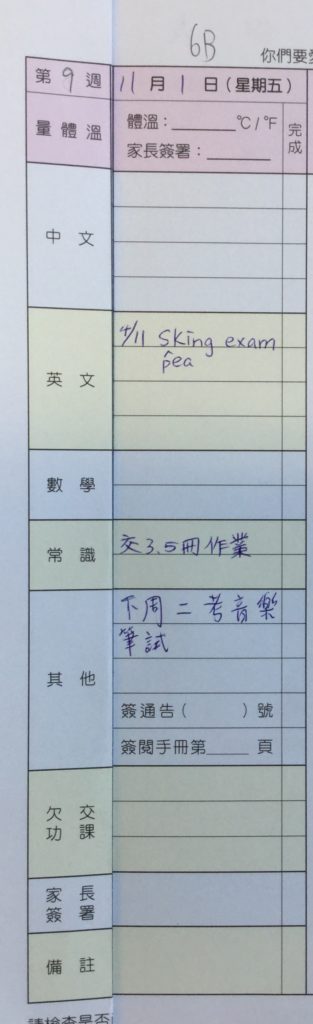 6B
你們要愛
第9週 11月1日(星期五)
量體溫
體溫：______℃/℉
家長簽署：______
完成
中文
英文
4/11 Sking exam
pea
數學
常識
交3.5冊作業
其他
下周二考音樂
筆試
簽通告( )號
簽閱手冊第____頁
欠交功課
家長簽署
備註
請檢查是否